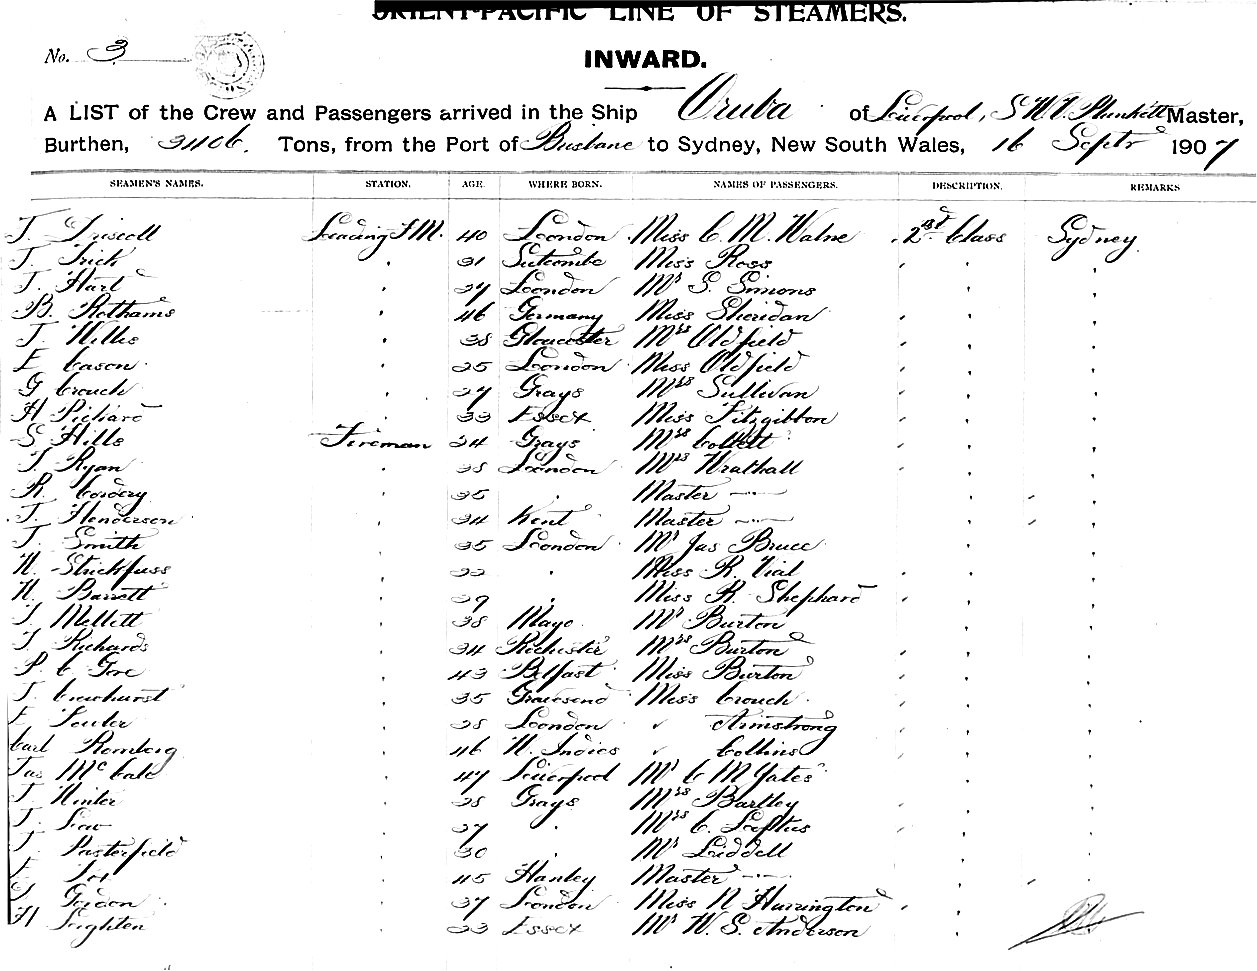 ORIENT-PACIFIC LINE OF STEAMERS.
No. 3
INWARD.
A LIST of the Crew and Passengers arrived in the Ship Oruba of Liverpool, Plunkett Master,
Burthen, 3406. Tons, from the Port of Brisbane to Sydney, New South Wales, 16 Septr 1907
SEAMEN'S NAMES. STATION. AGE. WHERE BORN. NAMES OF PASSENGERS. DESCRIPTION. REMARKS
J. Driscoll Leading F.M. 40 London Miss C. M. Walne 2nd Class Sydney
J. Frick 31 Sutcombe Miss Ross
J. Hart 27 London Mr S. Simons
B. Rothams 46 Germany Miss Sheridan
J. Willis 38 Gloucester Mrs Oldfield
E Cason 25 London Miss Oldfield
G Crouch 27 Grays Mrs Sullivan
H Pichard 33 Essex Miss Fitzgibbon
S Hills Fireman 24 Grays Mrs Collett
J. Ryan 38 London Mrs Wrathall
R. Cordery 35 Master —"—
J. Henderson 34 Kent Master —"—
J Smith 35 London Mr Jas Bruce
W. Strickfuss 22 Miss R. Vial
W. Barrett 29 Miss R. Shephard
J. Mellett 38 Mayo Mr Burton
J. Richards 34 Rochester Mrs Burton
P C Gore 43 Belfast Miss Burton
J. Crowhurst 35 Gravesend Miss Crouch
F. Souter 28 London Armstrong
Carl Romberg 46 W. Indies Collins
Jas McCale 47 Liverpool Mr C M Yates
J. Winter 28 Grays Mrs Bartley
J. Law 27 Mrs C. Loftus
J. Pasterfield 30 Mr Liddell
F. 45 Hanley Master —"—
J. Goodon 37 London Miss N Harrington
H Leighten 23 Essex Mr W. S. Anderson